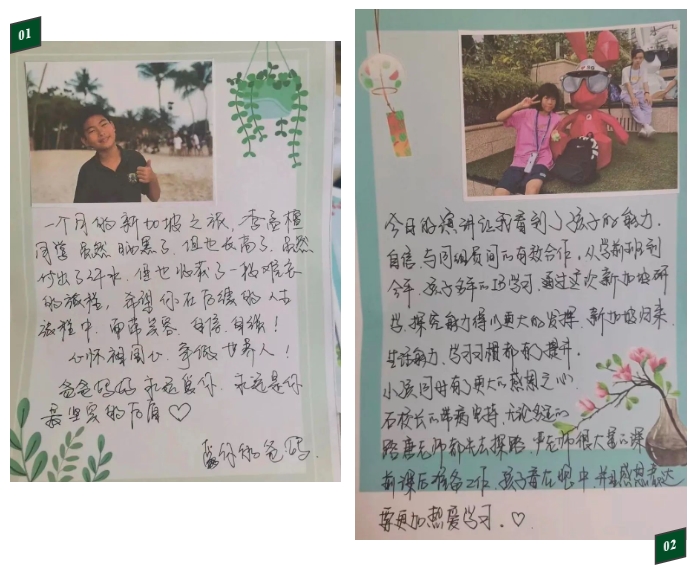 01
一个月的新加坡之旅，李孟檀
同学虽然晒黑了，但也长高了，虽然
付出了汗水，但也收获了一段难忘
的旅程，希望你在后续的人生
旅程中，面带笑容，自信，自强！
心怀祖国心，争做世界人！
爸爸妈妈永远爱你，永远是你
最坚实的后盾♡
爱你的爸妈.
今日的演讲让我看到了孩子的能力，
自信，与同组员间的有效合作，从学前班到
今年，孩子多年的IB学习，通过这次新加坡研
学，探究能力得以更大的发挥，新加坡归来，
生活能力，学习习惯都有了提升.
小孩同时有了更大的感恩之心，
石校长的带病坚持，无论多远的
路唐老师都先去探路，严老师很大量的课
前课后准备工作，孩子看在眼中，并且感恩表达
要更加热爱学习.♡
02